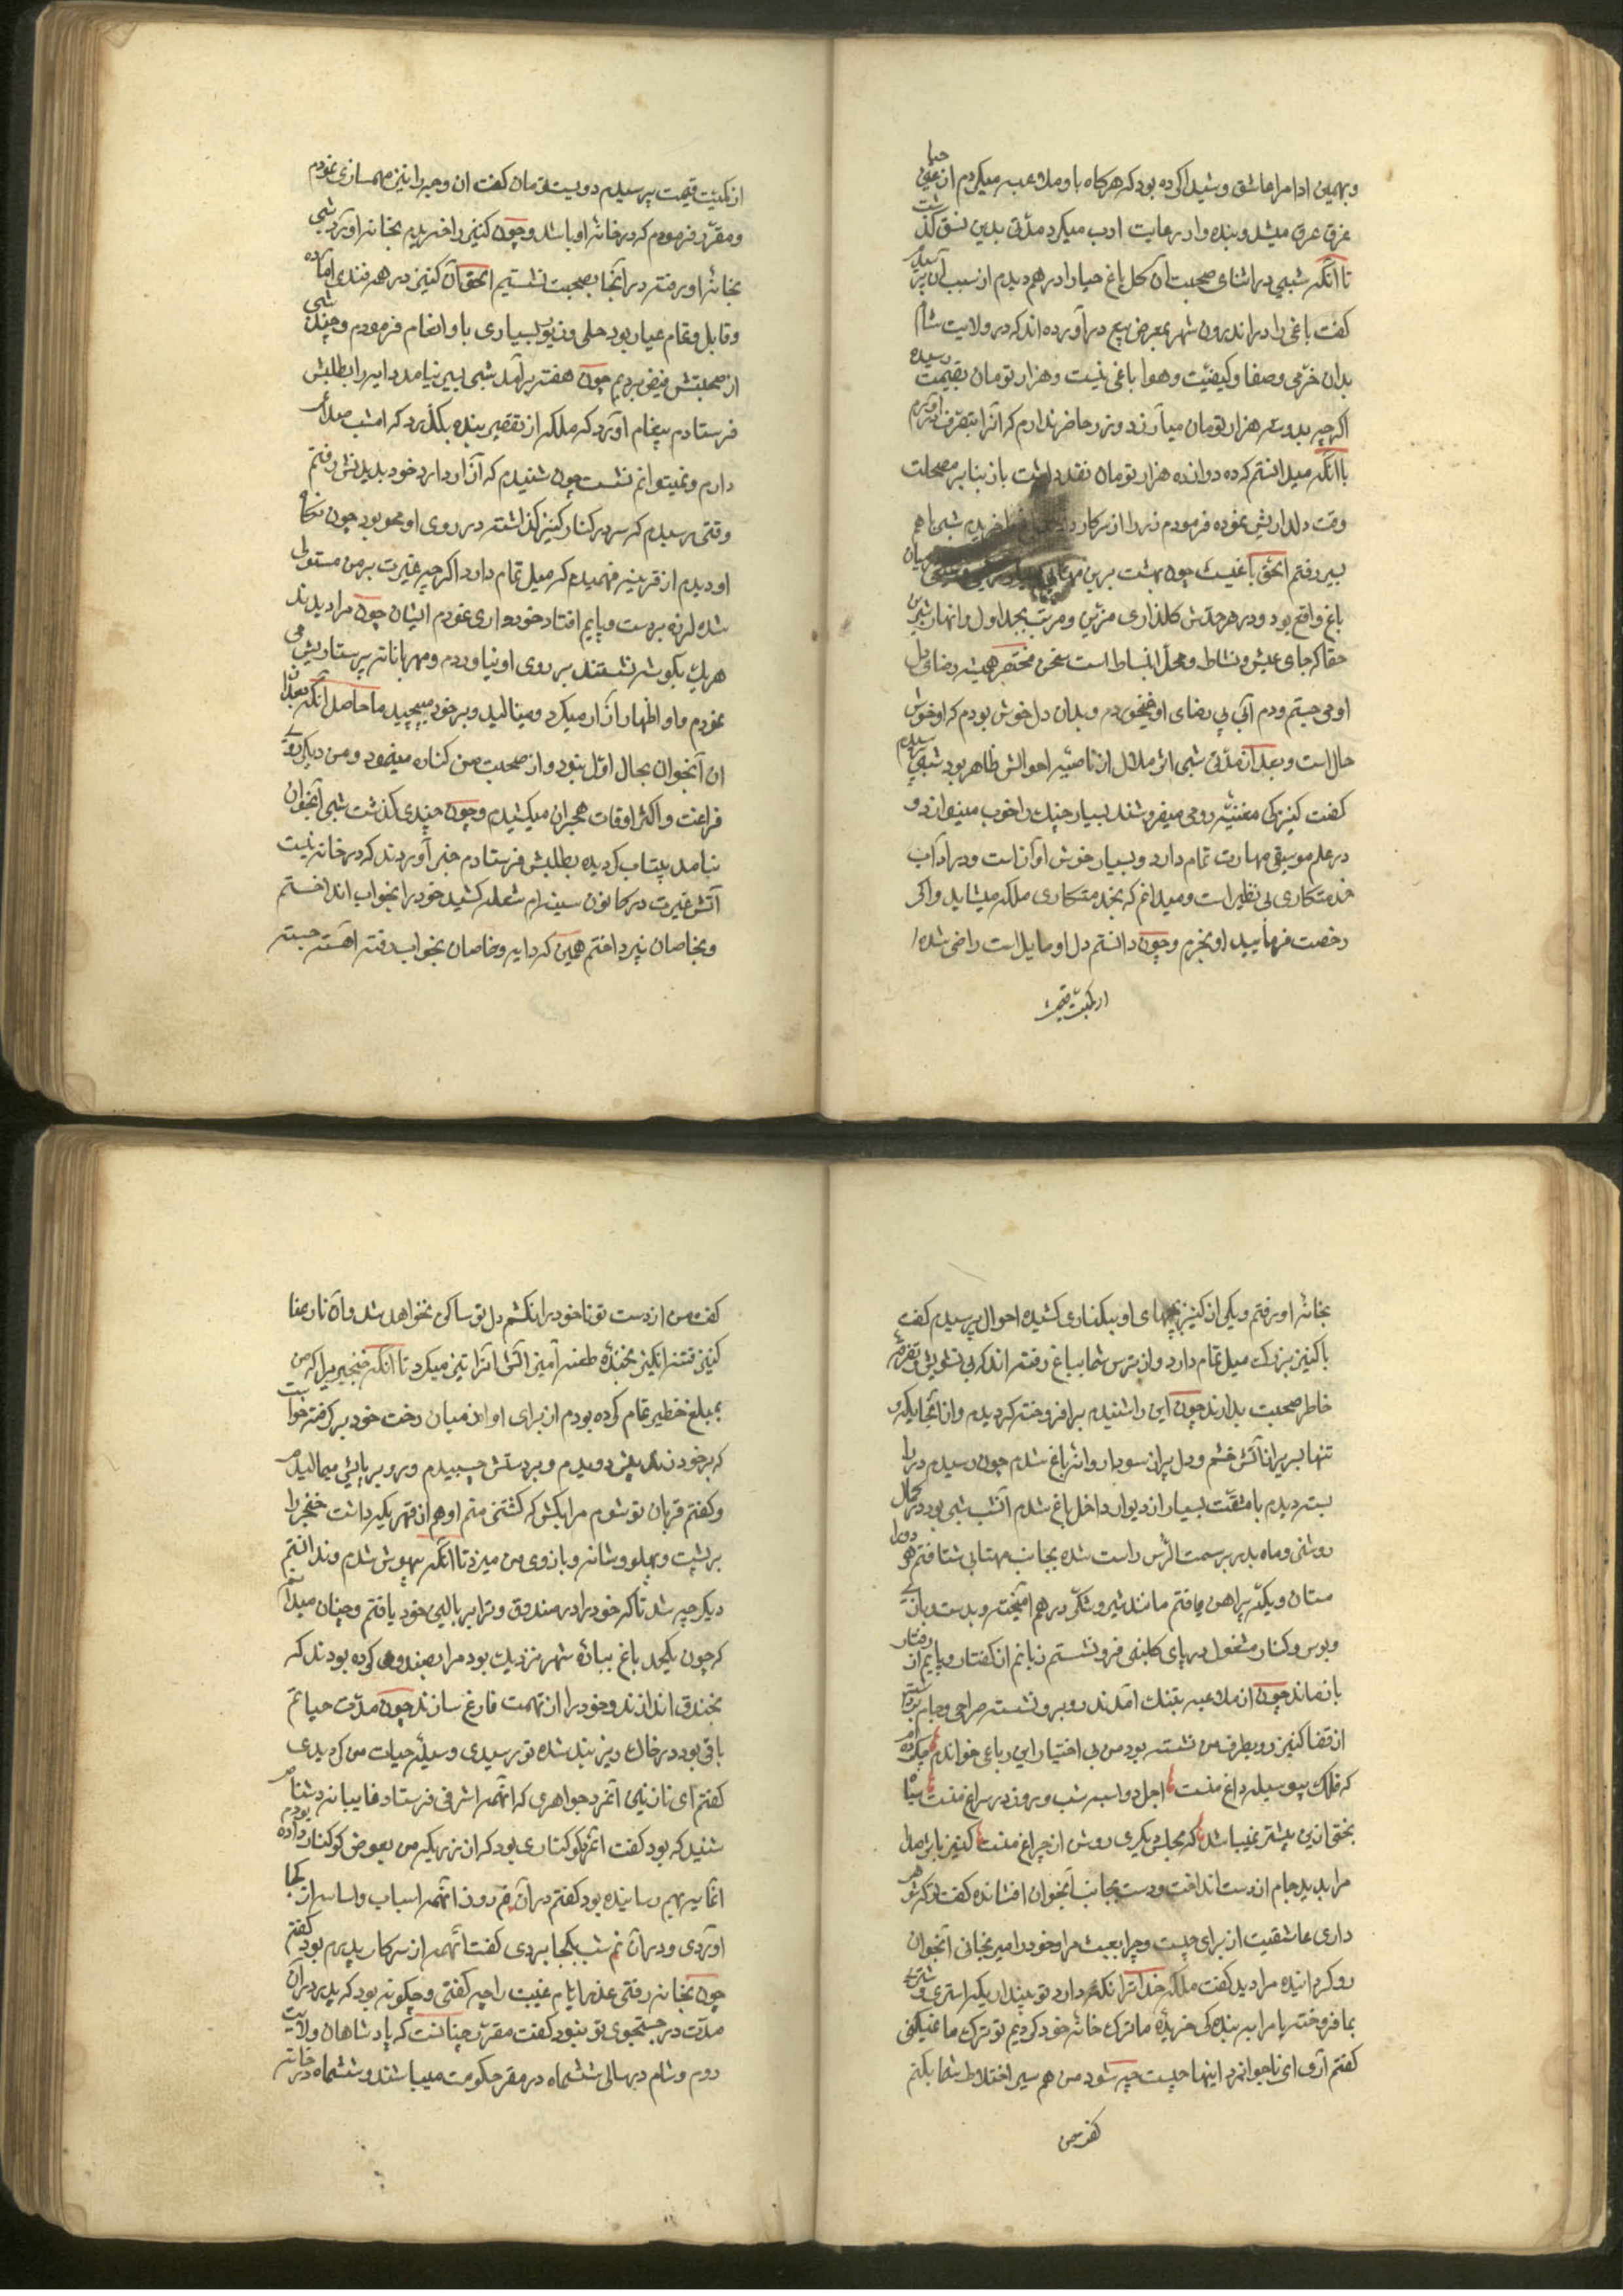 و بهمین ادا مرا عاشق و شیدا کرده بود که هرکاه با او ملاعبه میکردم از خوی حیا
غرق عرق میشد و بنده را در رعایت ادب میکرد مدتی بدین نسق گذشت
تا آنکه شبی در اثنای صحبت آن گل باغ حیا را درهم دیدم از سبب آن پرسیدم
کفت باغی را در اندرون شهر بمعرض بیع درآورده اند که در ولایت شام
بدان خرّمی و صفا و کیفیّت و هوا باغی نیست و هزار تومان بقیمت رسیده
اکرچه بدو سه هزار تومان میارزد و زر حاضر ندارم که آنرا بتصرف درآورم
با آنکه میدانستم که ده دوازده هزار تومان نقد داشت باز بنابر مصلحت
وقت دلداریش نموده فرمودم زر را از سرکار باغ را خرید شبی باهم
بسیر رفتیم الحق باغیست چون بهشت برین مهتابی میان
باغ واقع بود و در هر حدّش کلذاری مزیّن و مرتب بجداول و انهار شیرین
حقا که جای عیش و نشاط و محلّ انبساط است سخن مختصر همیشه رضای دل
او می جستم و دم آبی بی رضای او نمیخوردم و بدان دل خوش بودم که او خوش
حال است و بعد از مدّتی شبی اثر ملال از ناصیه احوالش ظاهر بود سبب پرسیدم
کفت کنیزکی مغنیّه رومی میفروشند بسیار چنک را خوب مینوازد و
در علم موسیقی مهارت تمام دارد و بسیار خوش آواز است و در آداب
خدمتکاری بی نظیر است و میدانم که بخدمتکاری ملکه میشاید و اکر
رخصت فرمایید او را بخرم و چون دانستم دل او مایل است راضی شده
از کمیّت قیمت
از کمیّت قیمت پرسیدم دویست تومان کفت آن وجه را نیز مهمسازی نمودم
و مقرّر فرمودم که در خانهٔ او باشد و چون کنیز را خرید بخانه آورد شبی
بخانهٔ او رفته در آنجا بصحبت نشستیم الحق آن کنیز در هر فنی آماده
و قابل و تمام عیار بود حلی و زیور بسیاری باو انعام فرمودم و چند شبی
از صحبتش فیض بردیم چون هفته برآمد شبی بسیر نیامد دایه را بطلبش
فرستادم پیغام آورد که ملکه از تقصیر بنده بکذرد که امشب صداع
دارم و نمیتوانم نشست چون شنیدم که آزار دارد خود بدیدنش رفتم
وقتی رسیدم که سر در کنار کنیز کذاشته در روی او محو بود چون نکاه
او دیدم از قرینه فهمیدم که میل تمام دارد اکرچه غیرت بر من مستولی
شده لرزه بر دست و پایم افتاد خودداری نمودم ایشان چون مرا دیدند
هریک بکوشه نشستند بر روی او نیاوردم و مهربانانه پرستاریش می
نمودم و او اظهار آزار میکرد و مینالید و بر خود میپیچید ما حاصل آنکه بعد از
آن آنجوان بحال اوّل نبود و از صحبت من کناره مینمود و من دیکر روی
فراغت و اکثر اوقات هجران میکشیدم و چون چندی کذشت شبی آنجوان
نیامد بیتاب کردیده بطلبش فرستادم خبر آوردند که در خانه نیست
آتش غیرت در کانون سینه ام شعله کشید خود را بخواب انداختم
و بخاصان نپرداختم همین که دایه و خاصان بخواب رفتند آهسته جسته
بخانهٔ او رفتم و یکی از کنیز بچهای او بیکناری کشیده احوال پرسیدم کفت
با کنیز بزرک میل تمام دارد و از ترس شما بباغ رفته اند که بی تشویش و تفرقهٔ
خاطر صحبت بدارند چون این را شنیدم برافروخته کردیدم و از آنجا یکه و
تنها سر پر از آتش خشم و دل پر از سودا روانهٔ باغ شدم چون رسیدم در را
بسته دیدم با مشقّت بسیار از دیوار داخل باغ شدم آنشب شبی بود در کمال
روشنی و ماه بدر بر سمت الرّس راست شده بجانب مهتابی شتافتم هر دو را
مستان و یکته پیراهن یافتم مانند شیر و شکر درهم آمیخته و بدست بازی
و بوس و کنار مشغول در پای کلبنی فرو نشستم زبانم از کفتار و پایم از رفتار
بازماند چون از ملاعبه بتنک آمدند روبرو نشسته صراحی و جام برداشته
از قضا کنیز رو بطرف من نشسته بود من بی اختیار این رباعی خواندم چکرده ام
که فلک پیوسیله داغ منست اجل دو اسبه شب و روز در سراغ منست سیاه
بختی ازین بیشتر نمیباشد که مجلس دیکری روشن از چراغ منست کنیز باین صدا
مرا بدید جام از دست انداخت و دست بجانب آنجوان افشانده کفت تو که شوهر
داری عاشقیت از برای چیست و چرا بعبث مرا و خود را میرنجانی آنجوان
رو کردانیده مرا دید کفت ملکه خدا ترا نکه دارد تو بپندار یکسر استری و شتری
بما فروخته یا مرا سر بنده کی خریدهٔ ما ترک خانهٔ خود کردیم تو ترک ما نمیکنی
کفتم آری ای ناجوانمرد اینها چیست چه شود من هم سیر اختلاط شما بکنم
کفت من
کفت من از دست تو تا خود را نکشم دل تو ساکن نخواهد شد و آن نار عنا
کنیز فتنه انکیز بخندهٔ طعنه آمیز آتش آنرا تیز میکرد تا آنکه خنجری را که من
بمبلغ خطیر تمام کرده بودم از برای او از میان رخت خود برکرفته خواست
که بر خود زند پیش دویدم و بر دستش چسپیدم و رو بر پایش میمالیدم
و کفتم قربان تو شوم مرا بکش که کشتنی منم او هم از قهر یکبار داشت خنجر را
بر پشت و پهلو و شانه و بازوی من میزد تا آنکه بیهوش شدم و ندانستم
دیکر چه شد تا که خود را در صندوق و ترا بر بالین خود یافتم و چنان میدانم
که چون یکحد باغ ببارهٔ شهر نزدیک بود مرا بصندوق کرده بودند که
بخندق اندازند و خود را از تهمت فارغ سازند چون مدّت حیاتم
باقی بود در خاک ریز بند شده تو رسیدی و وسیلهٔ حیات من کردیدی
کفتم ای نازنین آنمرد جواهری که آنهمه اشرفی فرستاد غایبانه دشنام
شنید که بود کفت آنمرد کوکناری بود که آن زر یکیر من بعوض کوکنار داده بودم
آنمایه بهم رسانیده بود کفتم در آن روز آنهمه اسباب و اساس از کجا
آوردی و در آن نیم شب بکجا بردی کفت آنهمه از سرکار پدرم بود کفتم
چون بخانه رفتی عذر ایّام غیبت را چه کفتی و چکونه بود که پدر در آن
مدّت در جستجوی تو نبود کفت مقرّر چنانست که پادشاهان ولایت
روم و شام در سالی ششماه در مقر حکومت میباشند و ششماه در خانه